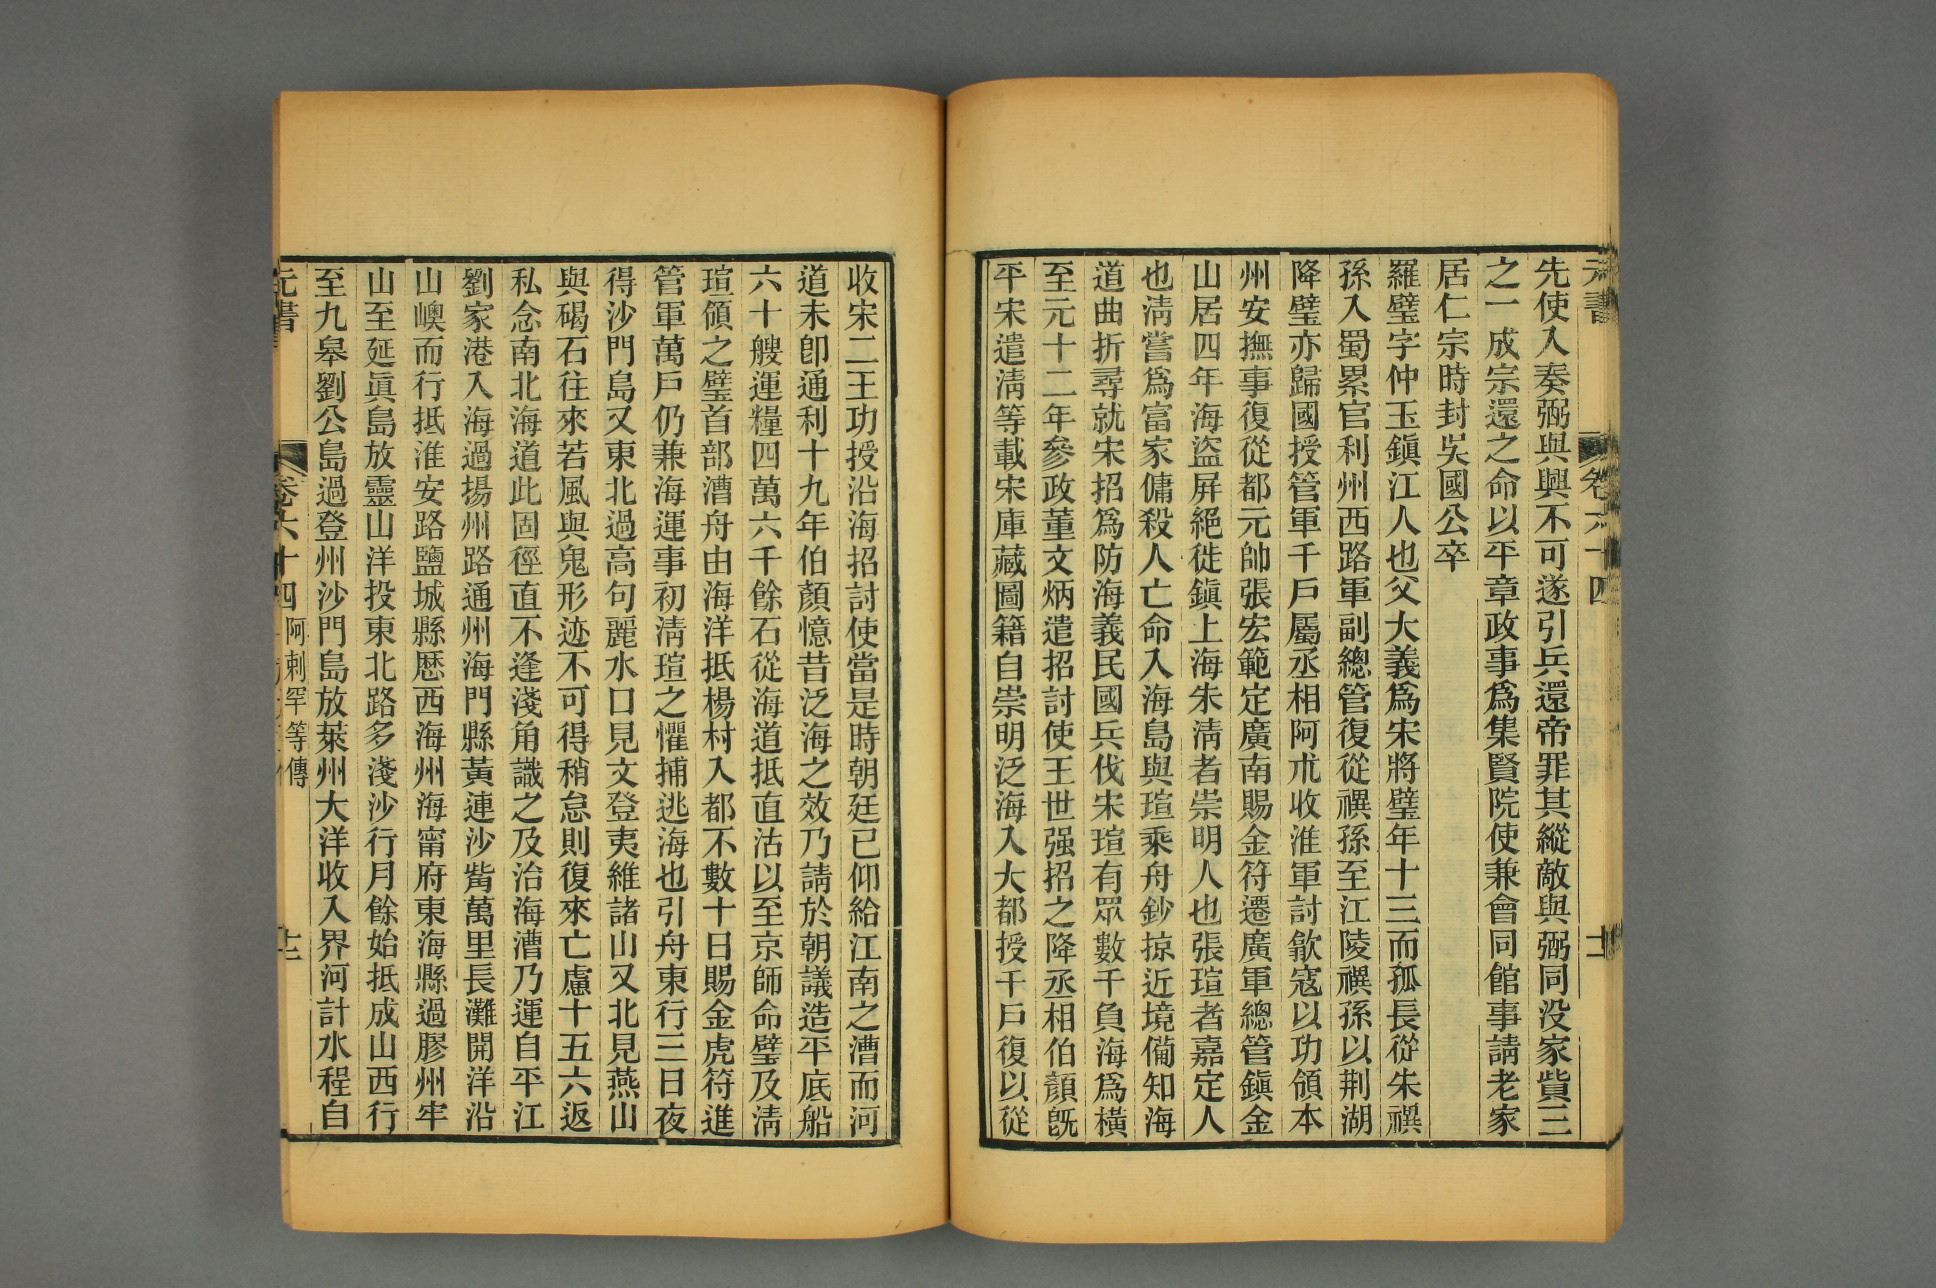 元書
卷六十四
十一
先使入奏弼與興不可遂引兵還帝罪其縱敵與弼同没家貲三
之一成宗還之命以平章政事爲集賢院使兼會同館事請老家
居仁宗時封吳國公卒
羅璧字仲玉鎭江人也父大義爲宋將璧年十三而孤長從朱禩
孫入蜀累官利州西路軍副總管復從禩孫至江陵禩孫以荆湖
降璧亦歸國授管軍千戶屬丞相阿朮收淮軍討歙寇以功領本
州安撫事復從都元帥張宏範定廣南賜金符遷廣軍總管鎭金
山居四年海盜屏絕徙鎭上海朱淸者崇明人也張瑄者嘉定人
也淸嘗爲富家傭殺人亡命入海島與瑄乘舟鈔掠近境備知海
道曲折尋就宋招爲防海義民國兵伐宋瑄有眾數千負海爲橫
至元十二年參政董文炳遣招討使王世强招之降丞相伯顏旣
平宋遣淸等載宋庫藏圖籍自崇明泛海入大都授千戶復以從
收宋二王功授沿海招討使當是時朝廷已仰給江南之漕而河
道未卽通利十九年伯顏憶昔泛海之效乃請於朝議造平底船
六十艘運糧四萬六千餘石從海道抵直沽以至京師命璧及淸
瑄領之璧首部漕舟由海洋抵楊村入都不數十日賜金虎符進
管軍萬戶仍兼海運事初淸瑄之懼捕逃海也引舟東行三日夜
得沙門島又東北過高句麗水口見文登夷維諸山又北見燕山
與碣石往來若風與鬼形迹不可得稍怠則復來亡慮十五六返
私念南北海道此固徑直不逢淺角識之及治海漕乃運自平江
劉家港入海過揚州路通州海門縣黃連沙觜萬里長灘開洋沿
山嶼而行抵淮安路鹽城縣歷西海州海甯府東海縣過膠州牢
山至延眞島放靈山洋投東北路多淺沙行月餘始抵成山西行
至九皋劉公島過登州沙門島放萊州大洋收入界河計水程自
元書
卷六十四
阿剌罕等傳
十二